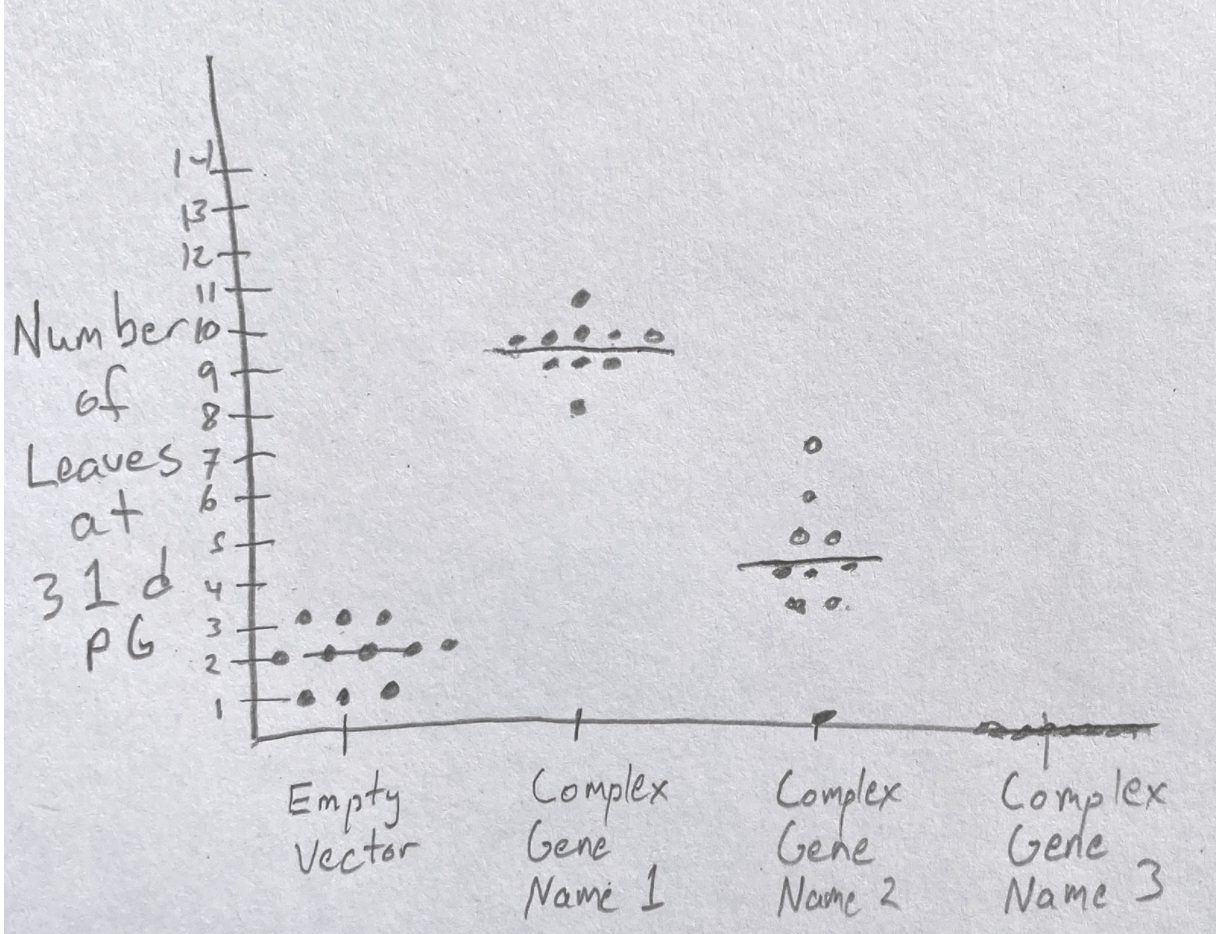 14
13
12
11
10
9
8
7
6
5
4
3
2
1
Number
of
Leaves
at
31 d
PG
Empty
Vector
Complex
Gene
Name 1
Complex
Gene
Name 2
Complex
Gene
Name 3